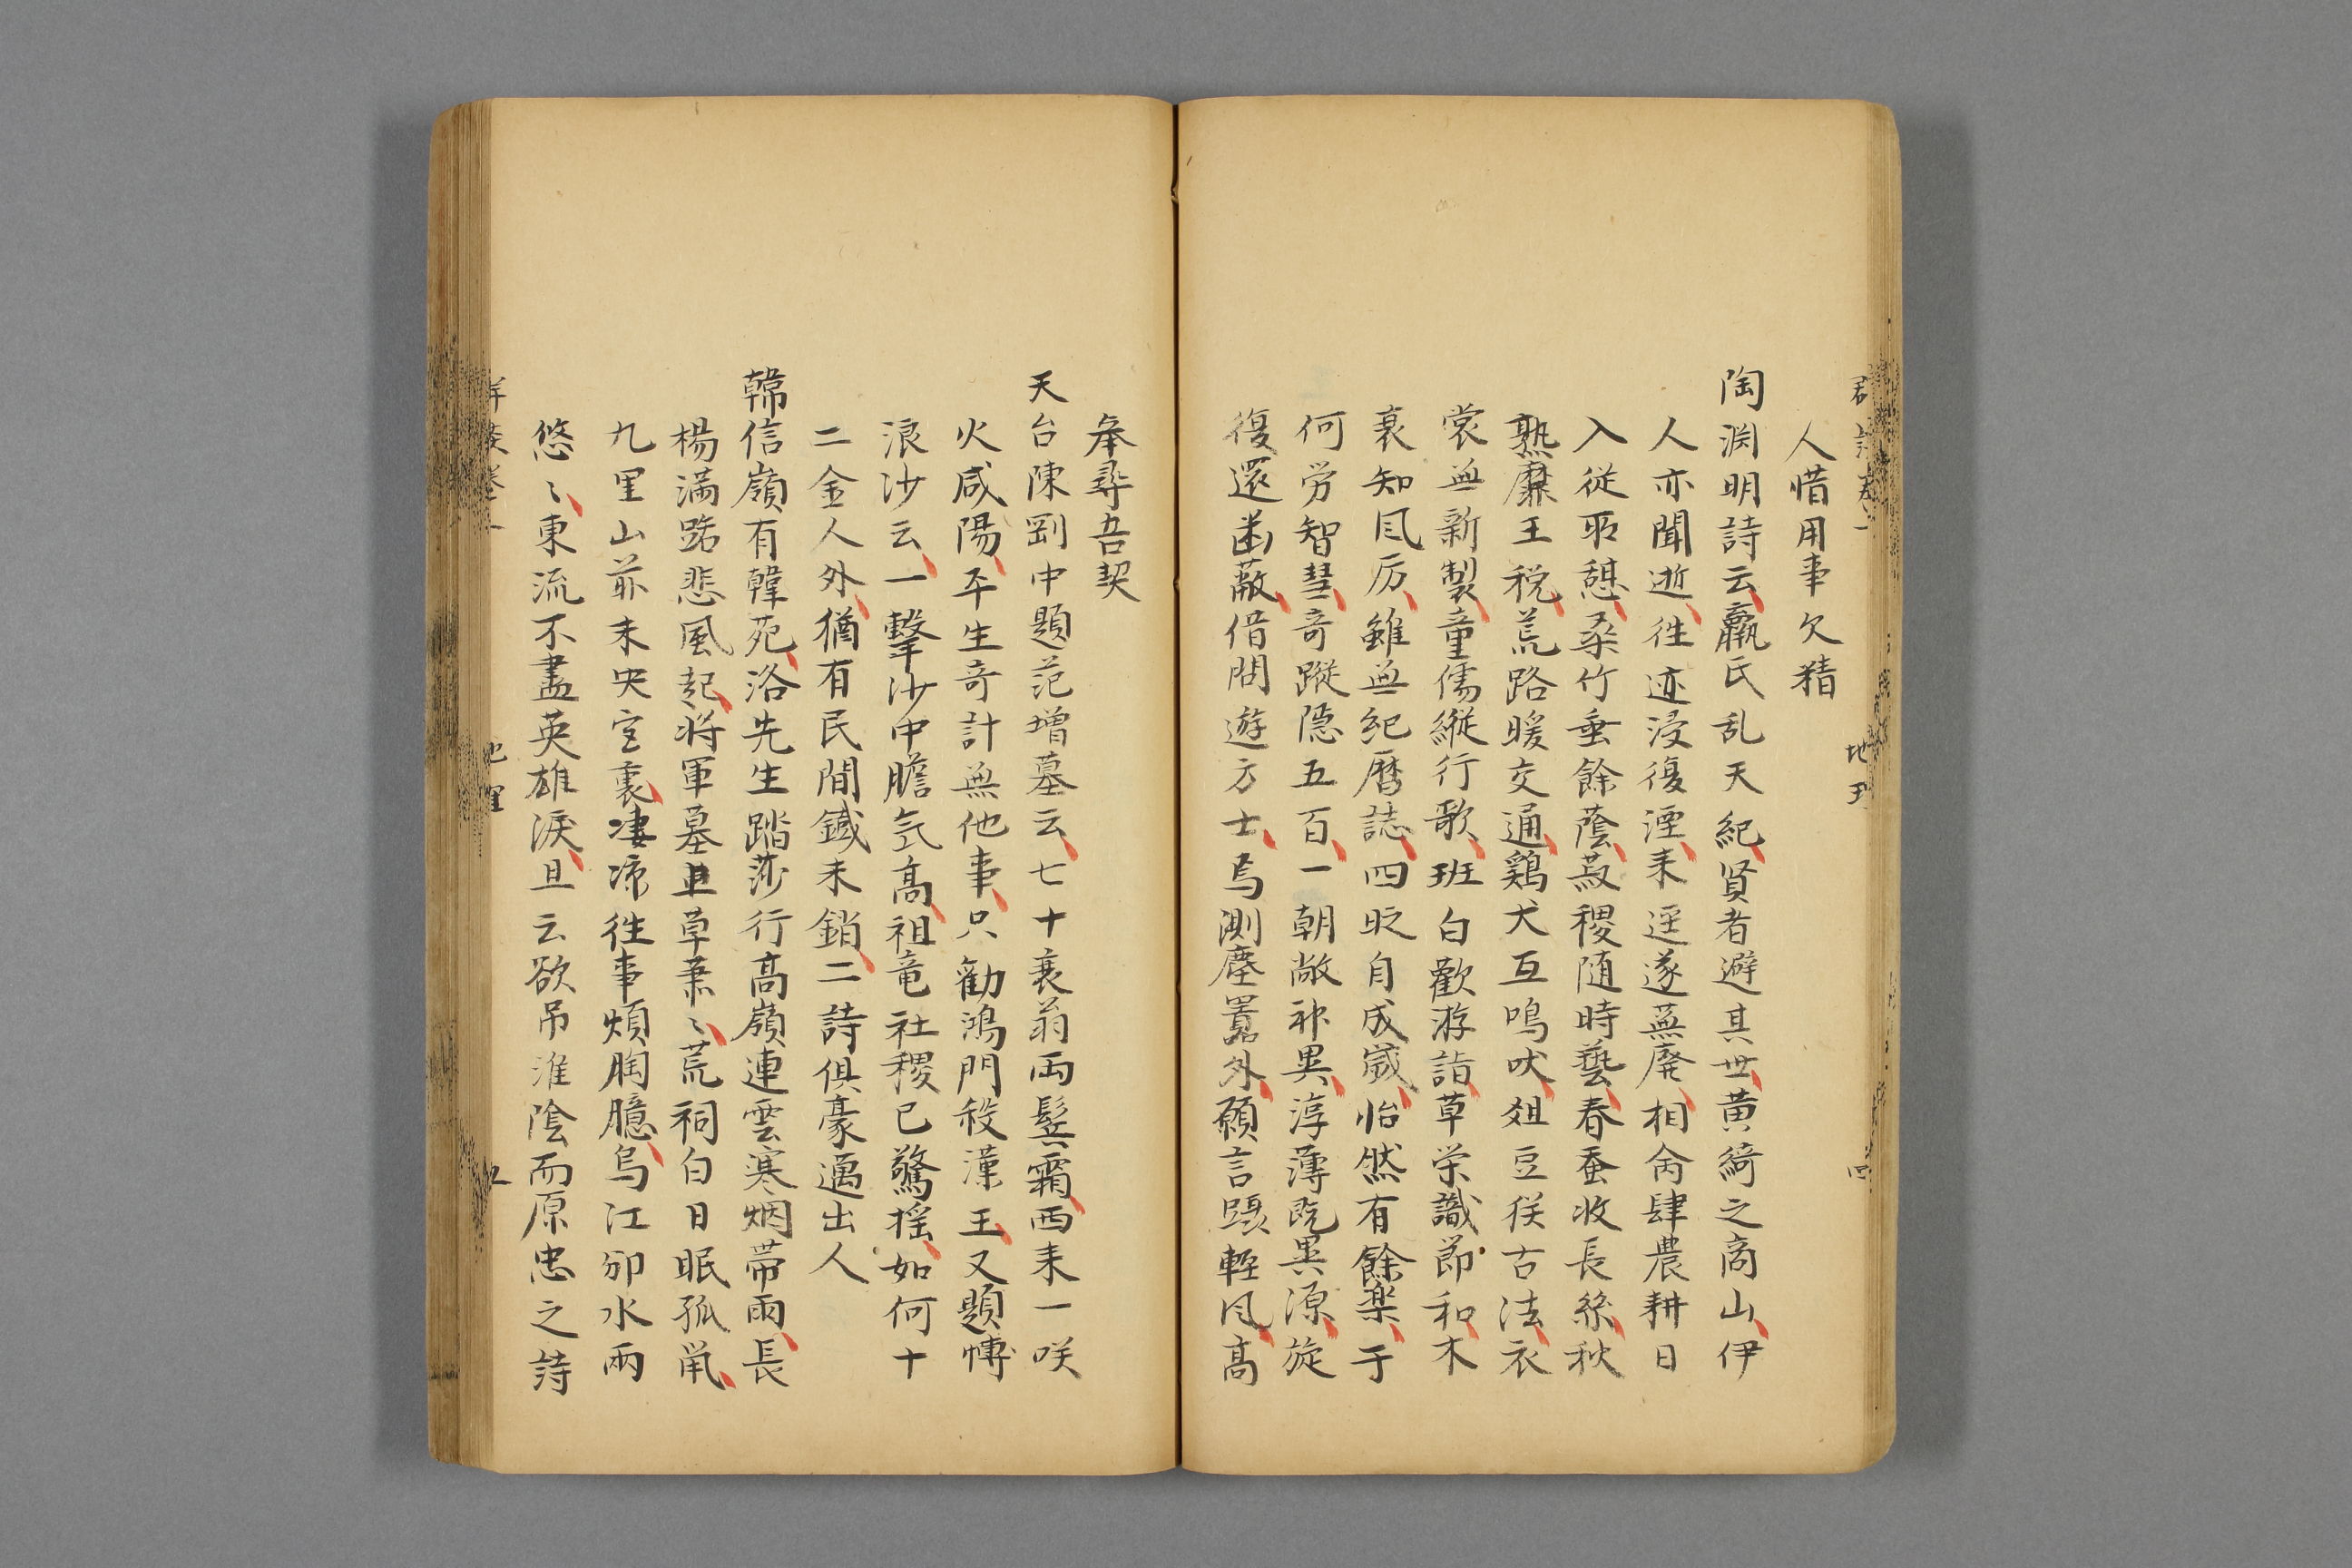 人惜用事欠精
陶渊明詩云羸氏乱天紀賢者避其世黄綺之商山伊
人亦聞逝徃迹浸復湮耒逕遂蕪廃相肏肆農耕日
入従所憩桒竹垂餘蔭菽稷随時藝春蚕收長絲秋
熟靡王税荒路暖交通鶏犬互鳴吠俎豆猶古法衣
裳無新製童儒縦行歌班白歡游詣草栄識節和木
衰知风厉雖無紀暦誌四时自成歳怡然有餘楽于
何労智彗奇蹤隠五百一朝敞神異淳薄既異源旋
復還幽蔽借問遊方士焉測塵囂外願言躡軽风髙
夆尋吾契
天台陳剛中題范増墓云七十衰翁両鬂霜西耒一咲
火咸陽平生奇計無他事只勧鴻門殺漢王又題慱
浪沙云一擊沙中膽気髙祖竜社稷已驚揺如何十
二金人外猶有民間鐡未銷二詩俱豪邁出人
韓信嶺有韓苑洛先生踏莎行髙嶺連雲寒烟帯雨長
楊満路悲風起将軍墓上草萧〻荒祠白日眠孤鼠
九里山前未央宫裏凄凉徃事煩胸臆烏江卯水兩
悠〻東流不盡英雄淚且云欲吊淮陰而原忠之詩